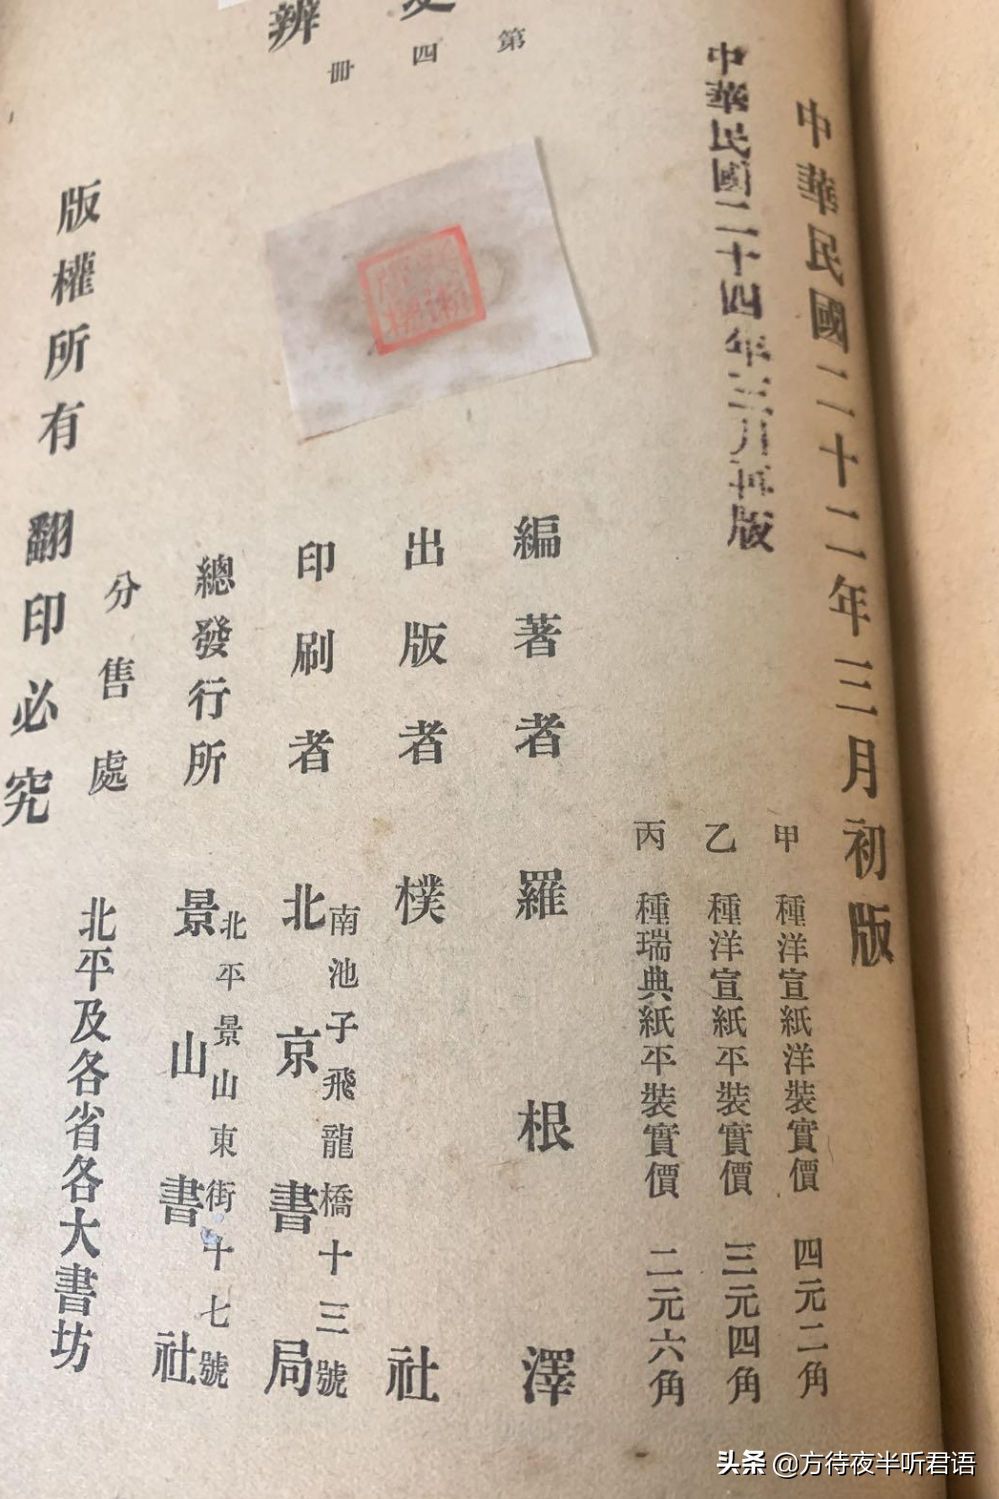 中華民國二十二年三月初版
中華民國二十四年三月再版
甲種洋宣紙洋裝實價 四元二角
乙種洋宣紙平裝實價 三元四角
丙種瑞典紙平裝實價 二元六角
第四冊
辨
編著者 羅根澤
出版者 樸社
印刷者 北京書局
南池子飛龍橋十三號
總發行所 景山書社
北平景山東街十七號
分售處 北平及各省各大書坊
版權所有 翻印必究
头条 @方待夜半听君语